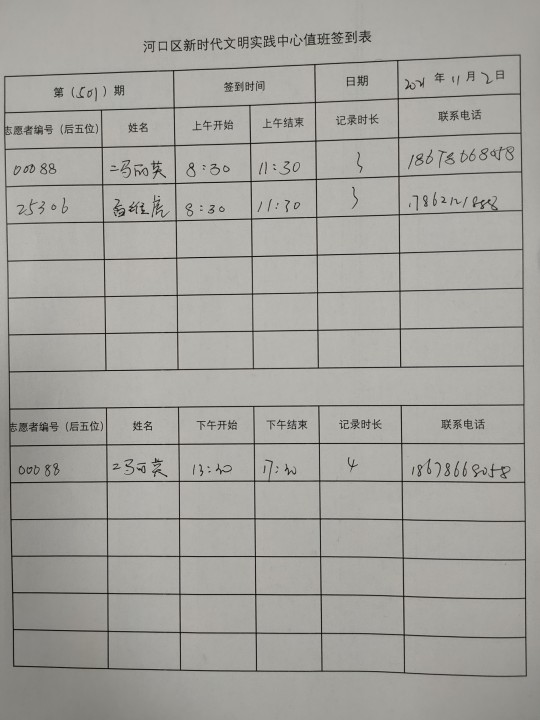 河口区新时代文明实践中心值班签到表
第（501）期 签到时间 日期 2021年11月2日
志愿者编号（后五位） 姓名 上午开始 上午结束 记录时长 联系电话
00088 冯丽英 8:30 11:30 3 18678668058
25306 孟维虎 8:30 11:30 3 17862121888
志愿者编号（后五位） 姓名 下午开始 下午结束 记录时长 联系电话
00088 冯丽英 13:30 17:30 4 18678668058